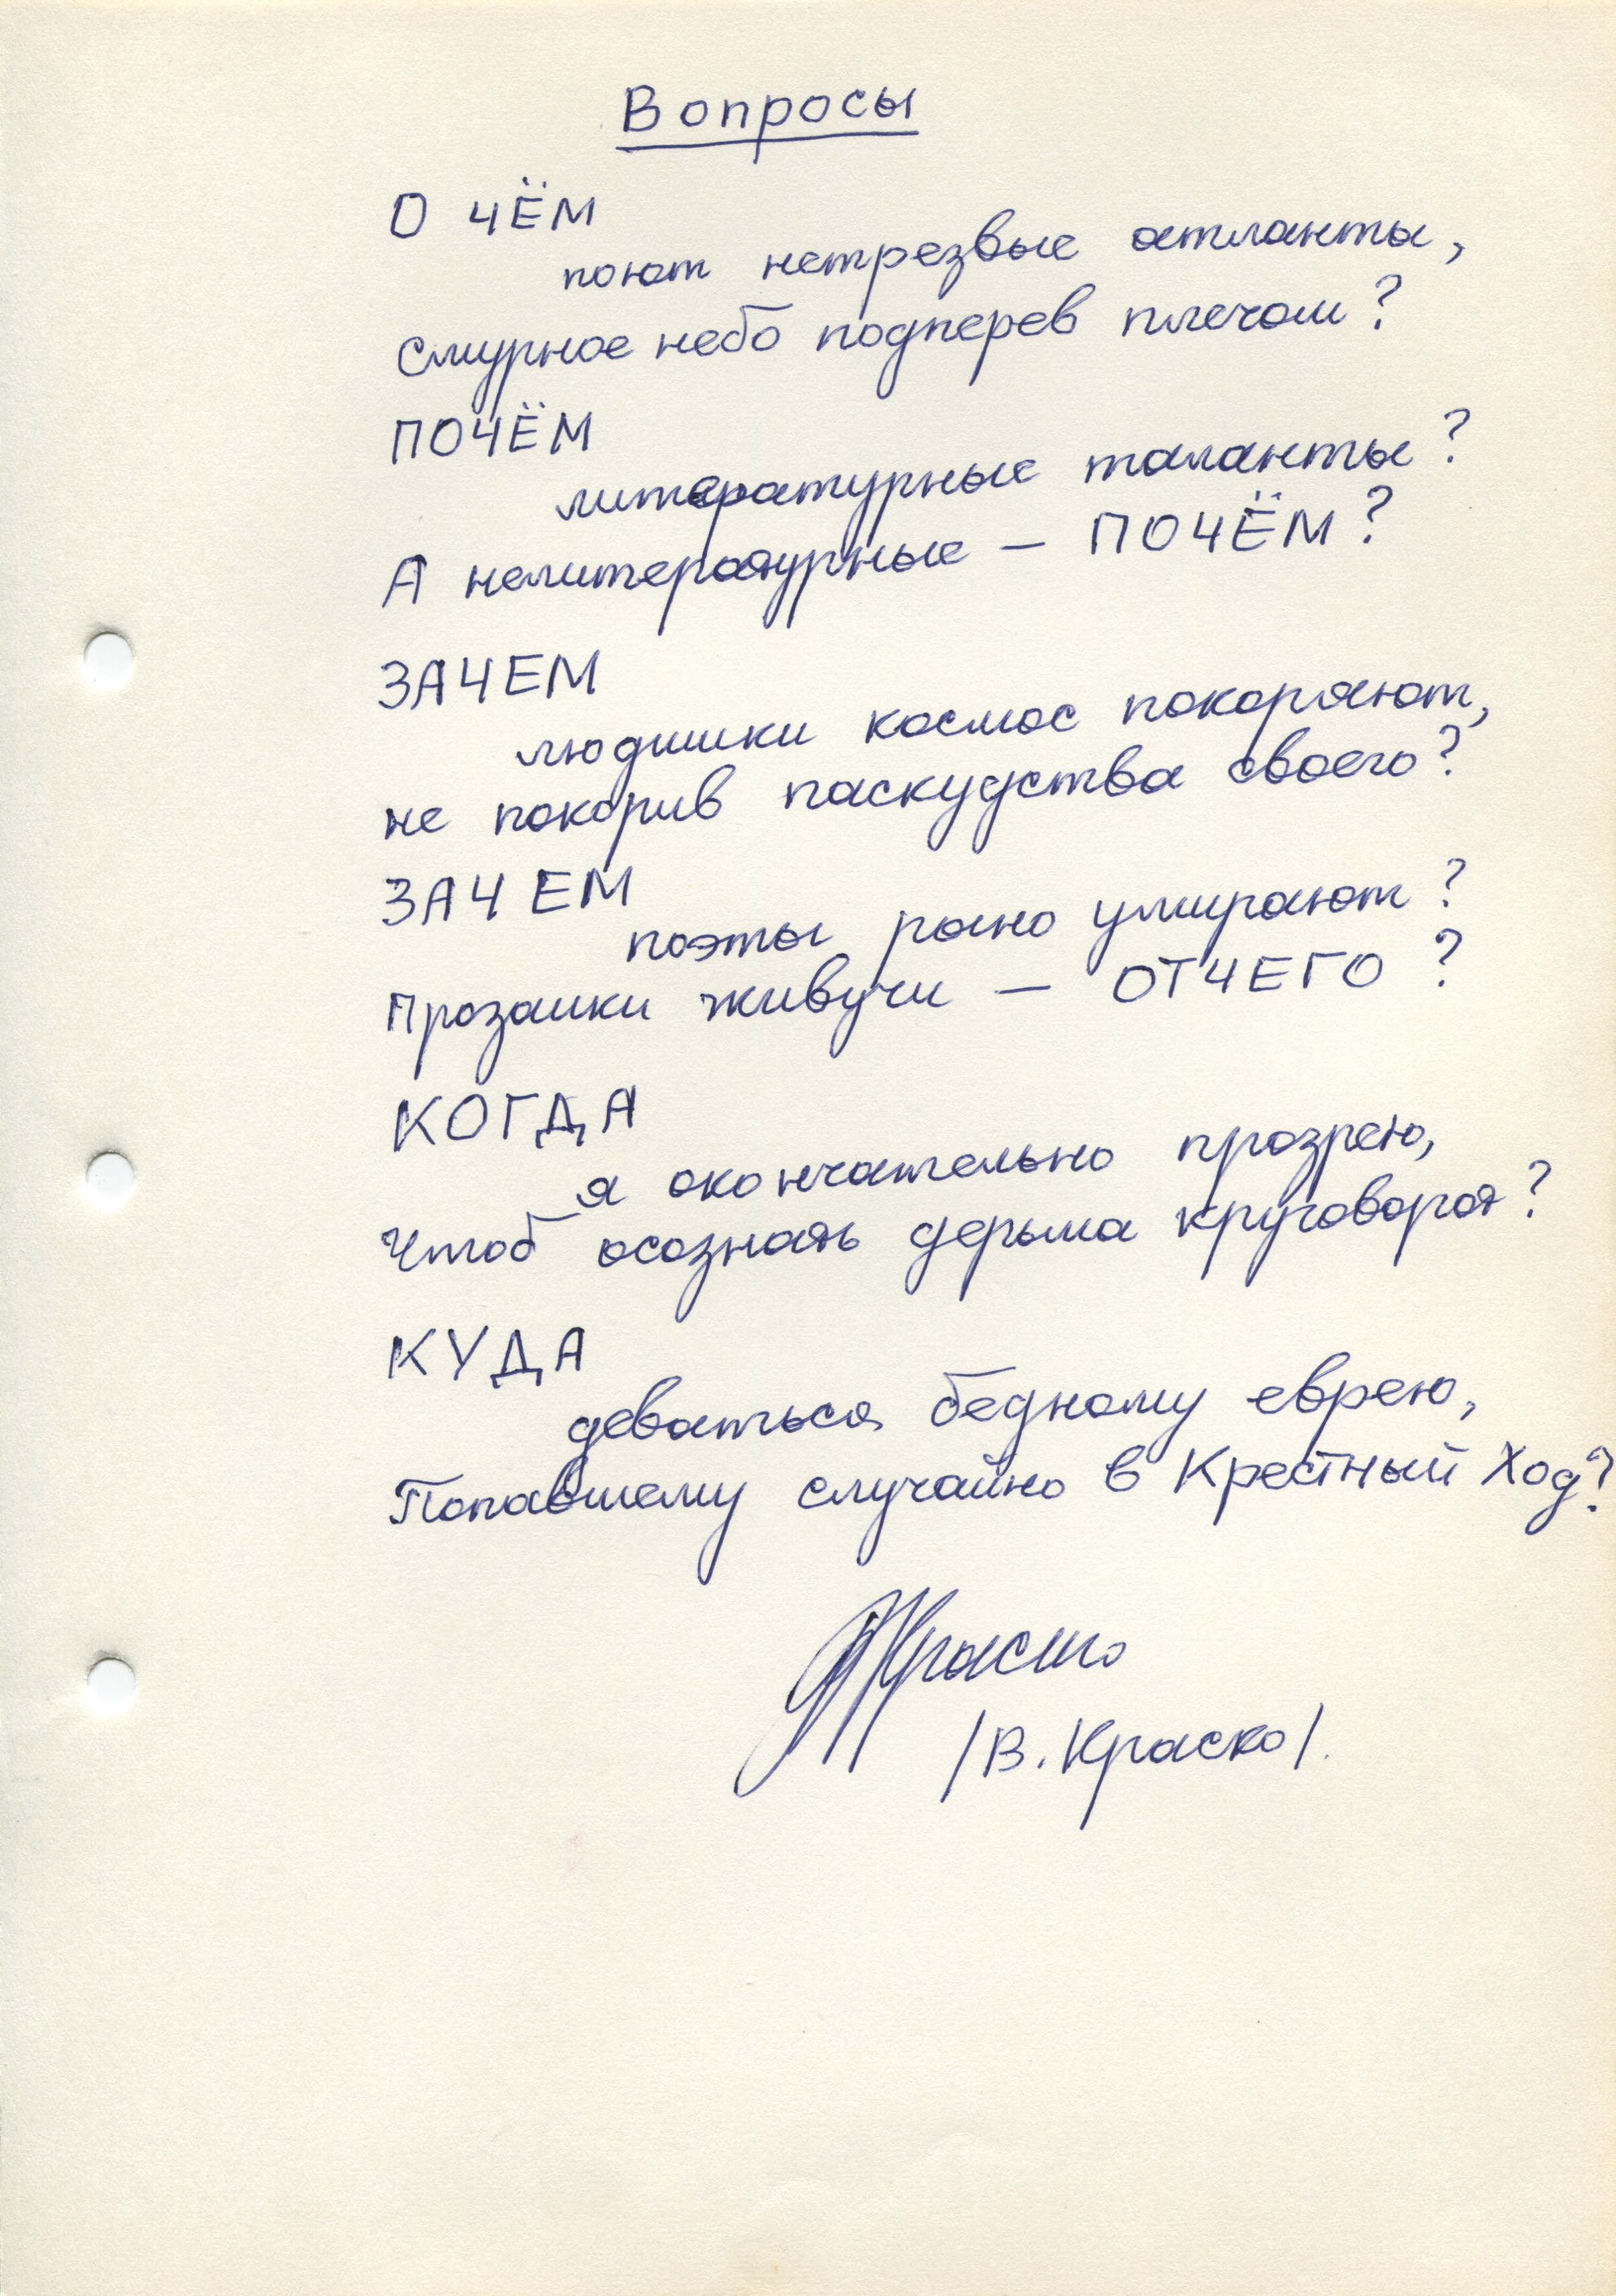 Вопросы
О ЧЁМ
поют нетрезвые атланты,
Смурное небо подперев плечом?
ПОЧЁМ
литературные таланты?
А нелитературные — ПОЧЁМ?
ЗАЧЕМ
людишки космос покоряют,
не покорив паскудства своего?
ЗАЧЕМ
поэты рано умирают?
Прозаики живучи — ОТЧЕГО?
КОГДА
я окончательно прозрею,
Чтоб осознать дерьма круговорот?
КУДА
деваться бедному еврею,
Попавшему случайно в Крестный Ход?
Краско
/В. Краско/.